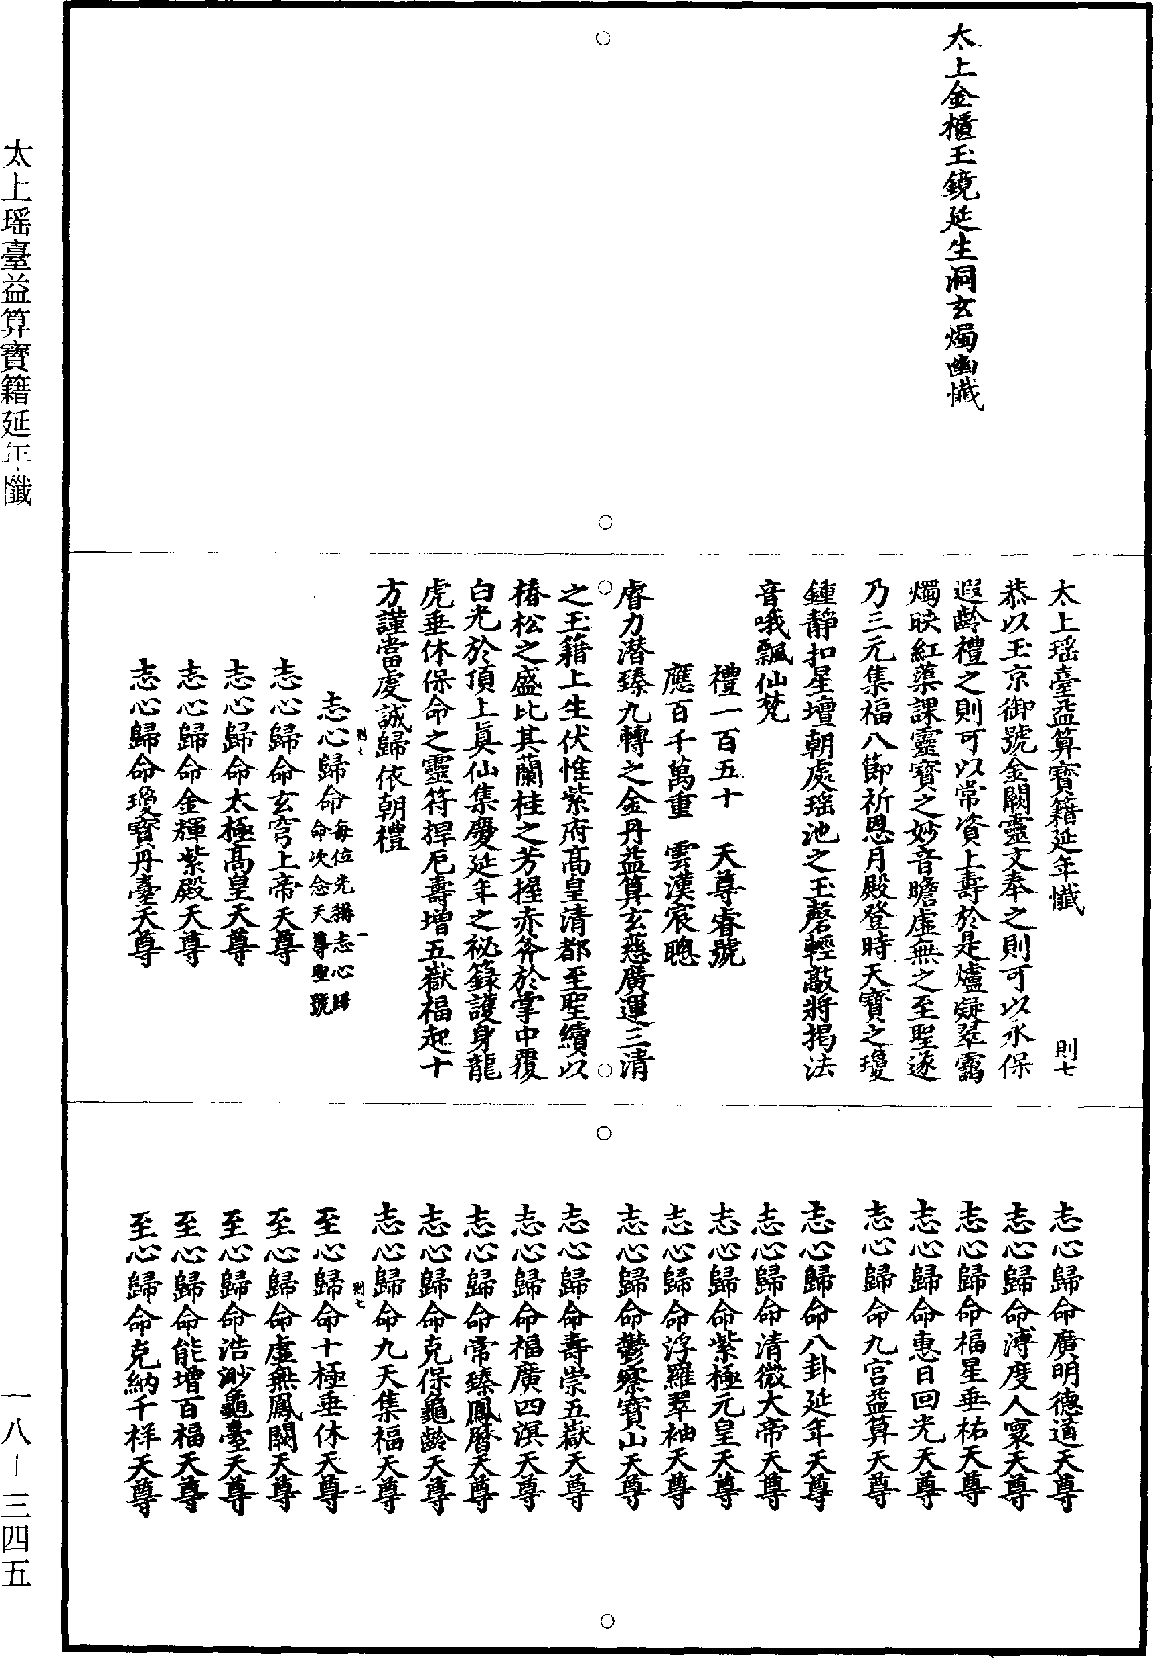 太上金櫃玉鏡延生洞玄燭幽懺
太上瑤臺益算寶籍延年懺　則七
恭以玉京御號金闕靈文奉之則可以永保
遐齡禮之則可以常資上壽於是爐凝翠靄
燭映紅蕖課靈寶之妙音瞻虛無之至聖逐
乃三元集福八節祈恩月殿登時天寶之瓊
鍾靜扣星壇朝處瑤池之玉磬輕敲將揭法
音哦飄仙梵
禮一百五十　天尊睿號
應百千萬重　雲漢宸聰
睿力潛臻九轉之金丹益算玄慈廣運三清
之玉籍上生伏惟紫府高皇清都至聖續以
椿松之盛比其蘭桂之芳握赤斧於掌中覆
白光於頂上真仙集慶延年之祕籙護身龍
虎垂休保命之靈符捍厄壽增五嶽福起十
方謹當虔誠歸依朝禮
則七　一
志心歸命每位先稱志心歸命次念天尊聖號
志心歸命玄穹上帝天尊
志心歸命太極高皇天尊
志心歸命金輝紫殿天尊
志心歸命瓊寶丹臺天尊
志心歸命廣明德道天尊
志心歸命溥度人寰天尊
志心歸命福星垂祐天尊
志心歸命惠日回光天尊
志心歸命九宮益算天尊
志心歸命八卦延年天尊
志心歸命清微大帝天尊
志心歸命紫極元皇天尊
志心歸命浮羅翠袖天尊
志心歸命鬱察寶山天尊
志心歸命壽崇五嶽天尊
志心歸命福廣四溟天尊
志心歸命常臻鳳曆天尊
志心歸命克保龜齡天尊
志心歸命九天集福天尊
則七　二
至心歸命十極垂休天尊
至心歸命虛無鳳闕天尊
至心歸命浩渺龜臺天尊
至心歸命能增百福天尊
至心歸命克納千祥天尊
太上瑤臺益算寶籍延年懺
一八—三四五